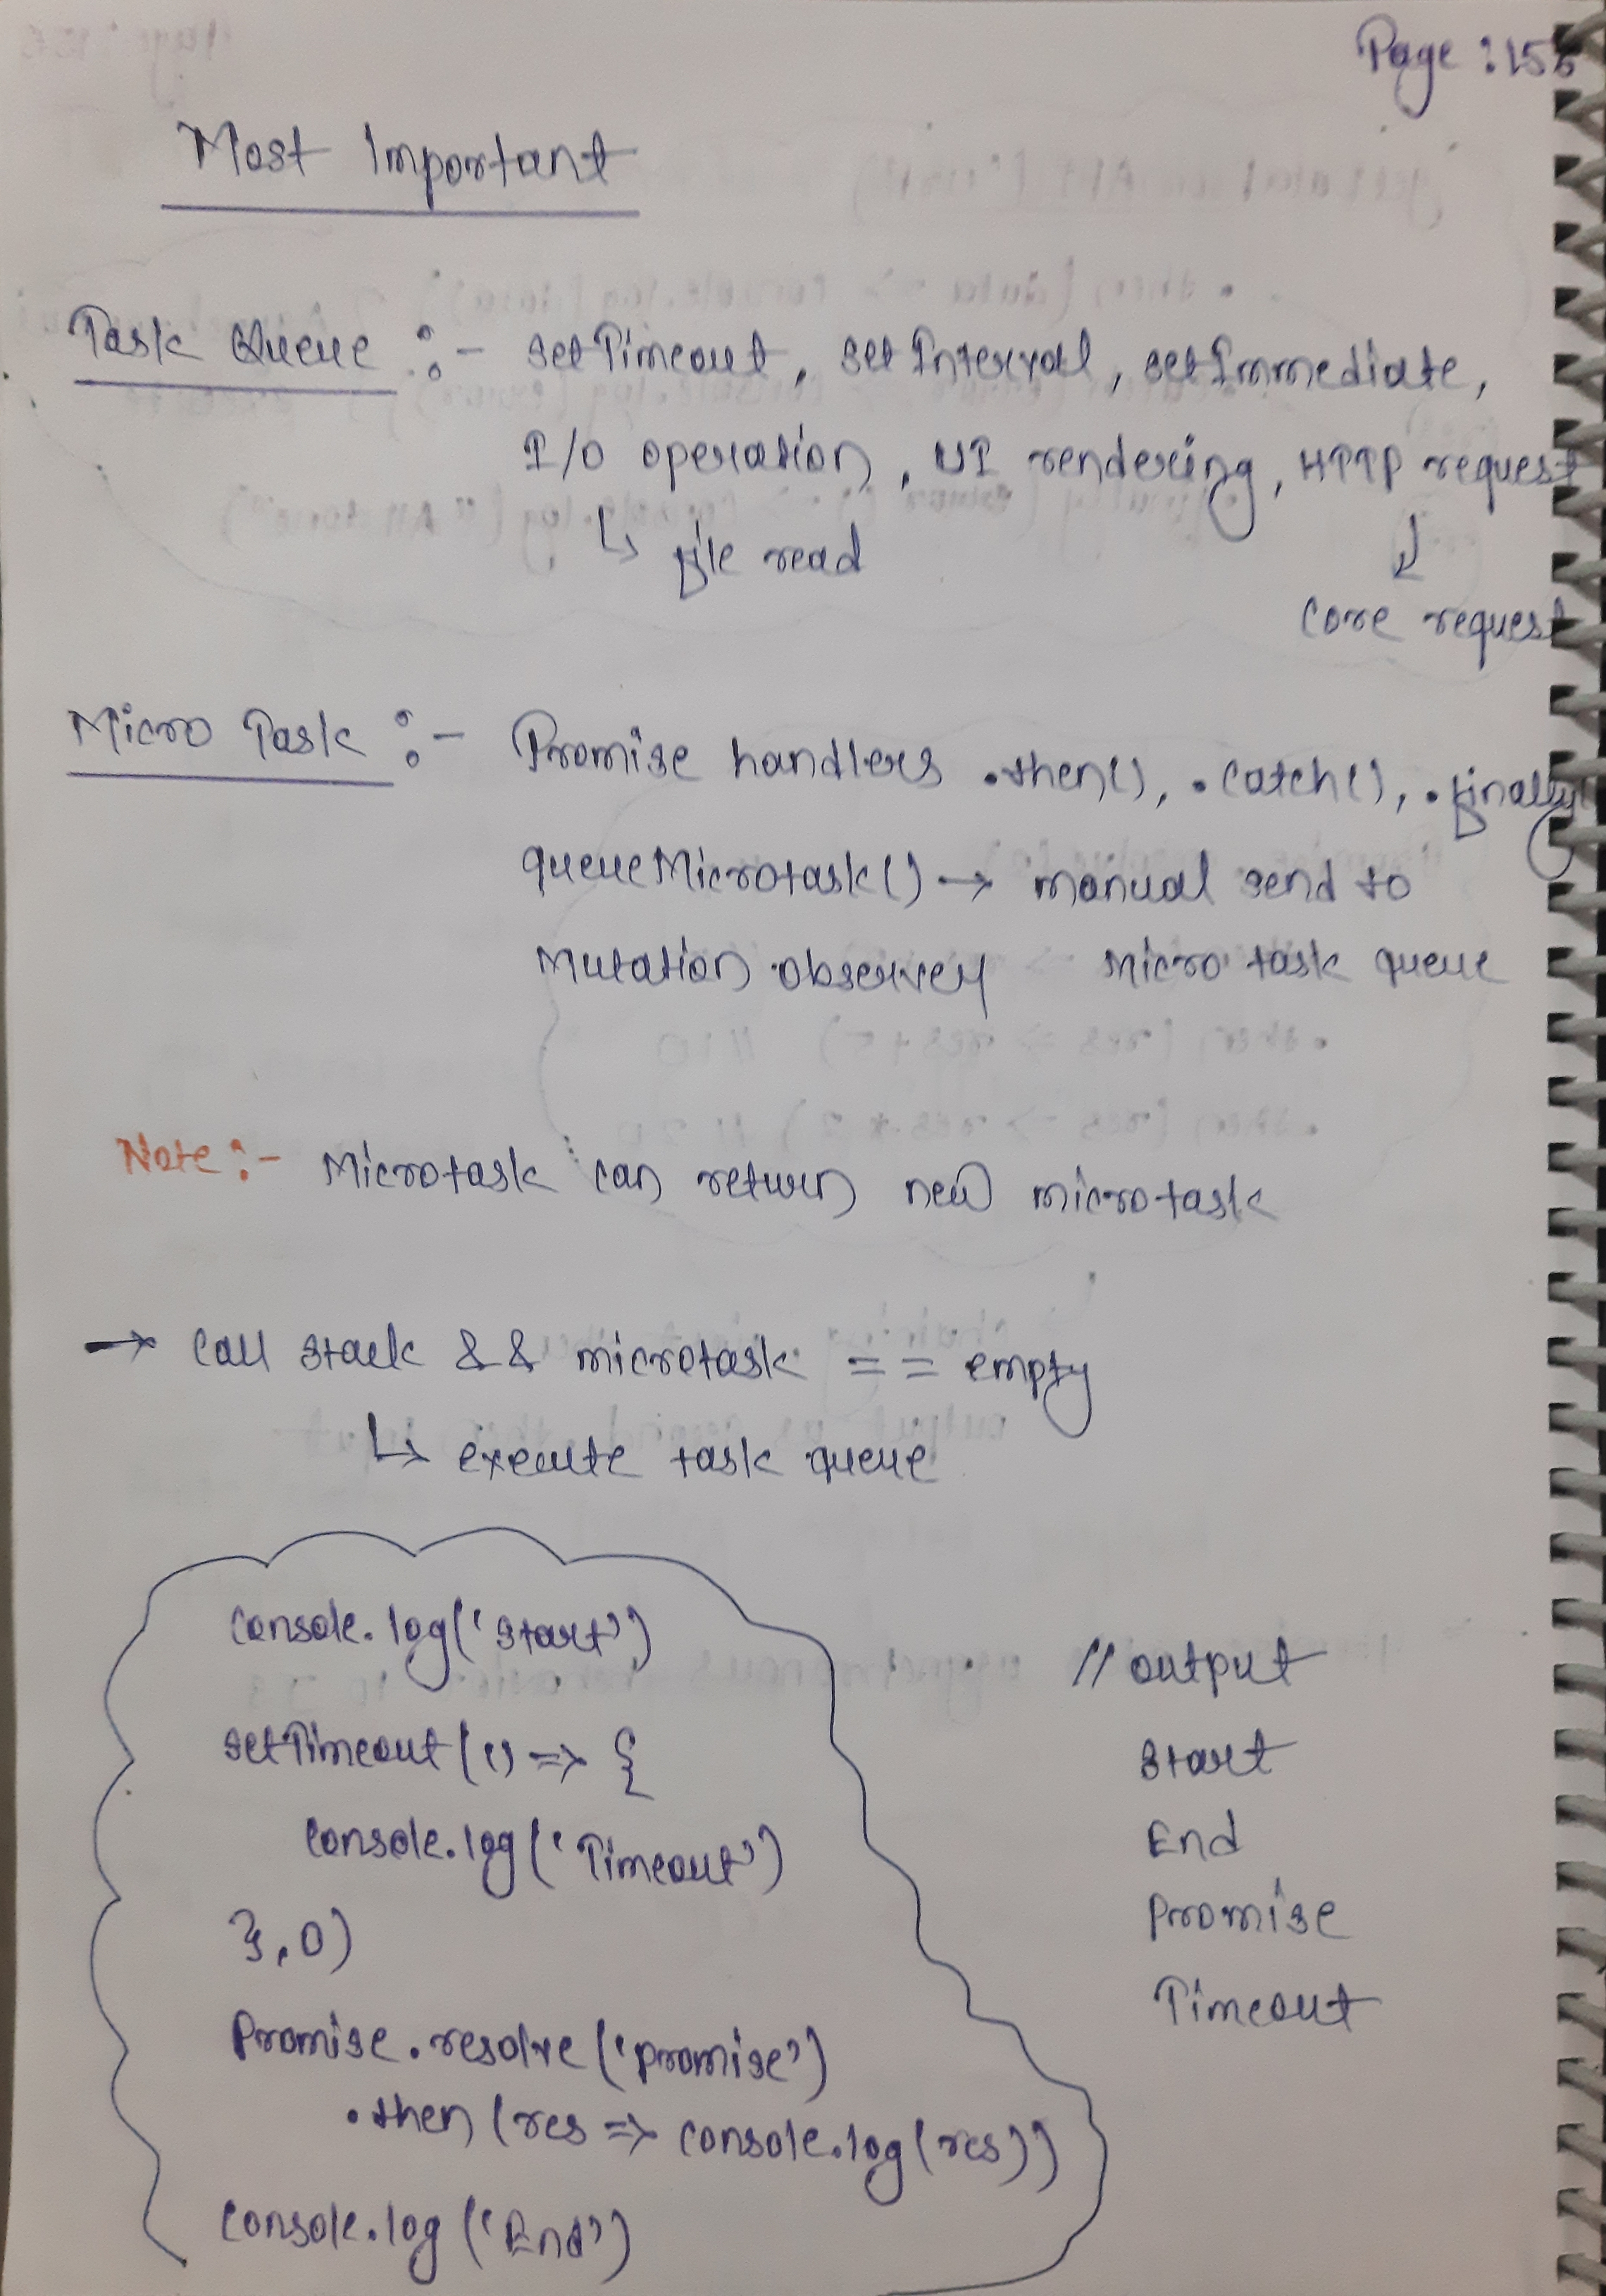 Page : 155
Most Important
Task Queue :- setTimeout, setInterval, setImmediate,
I/O operation, UI rendering, HTTP request
↳ file read ↓
core request
Micro Task :- Promise handlers .then(), .catch(), .finally
queueMicrotask() → manual send to
Mutation observer micro task queue
Note :- Microtask can return new microtask
→ call stack && microtask == empty
↳ execute task queue
console.log('Start')
setTimeout(() => {
console.log('Timeout')
},0)
Promise.resolve('promise')
.then(res => console.log(res))
console.log('End')
// output
Start
End
Promise
Timeout